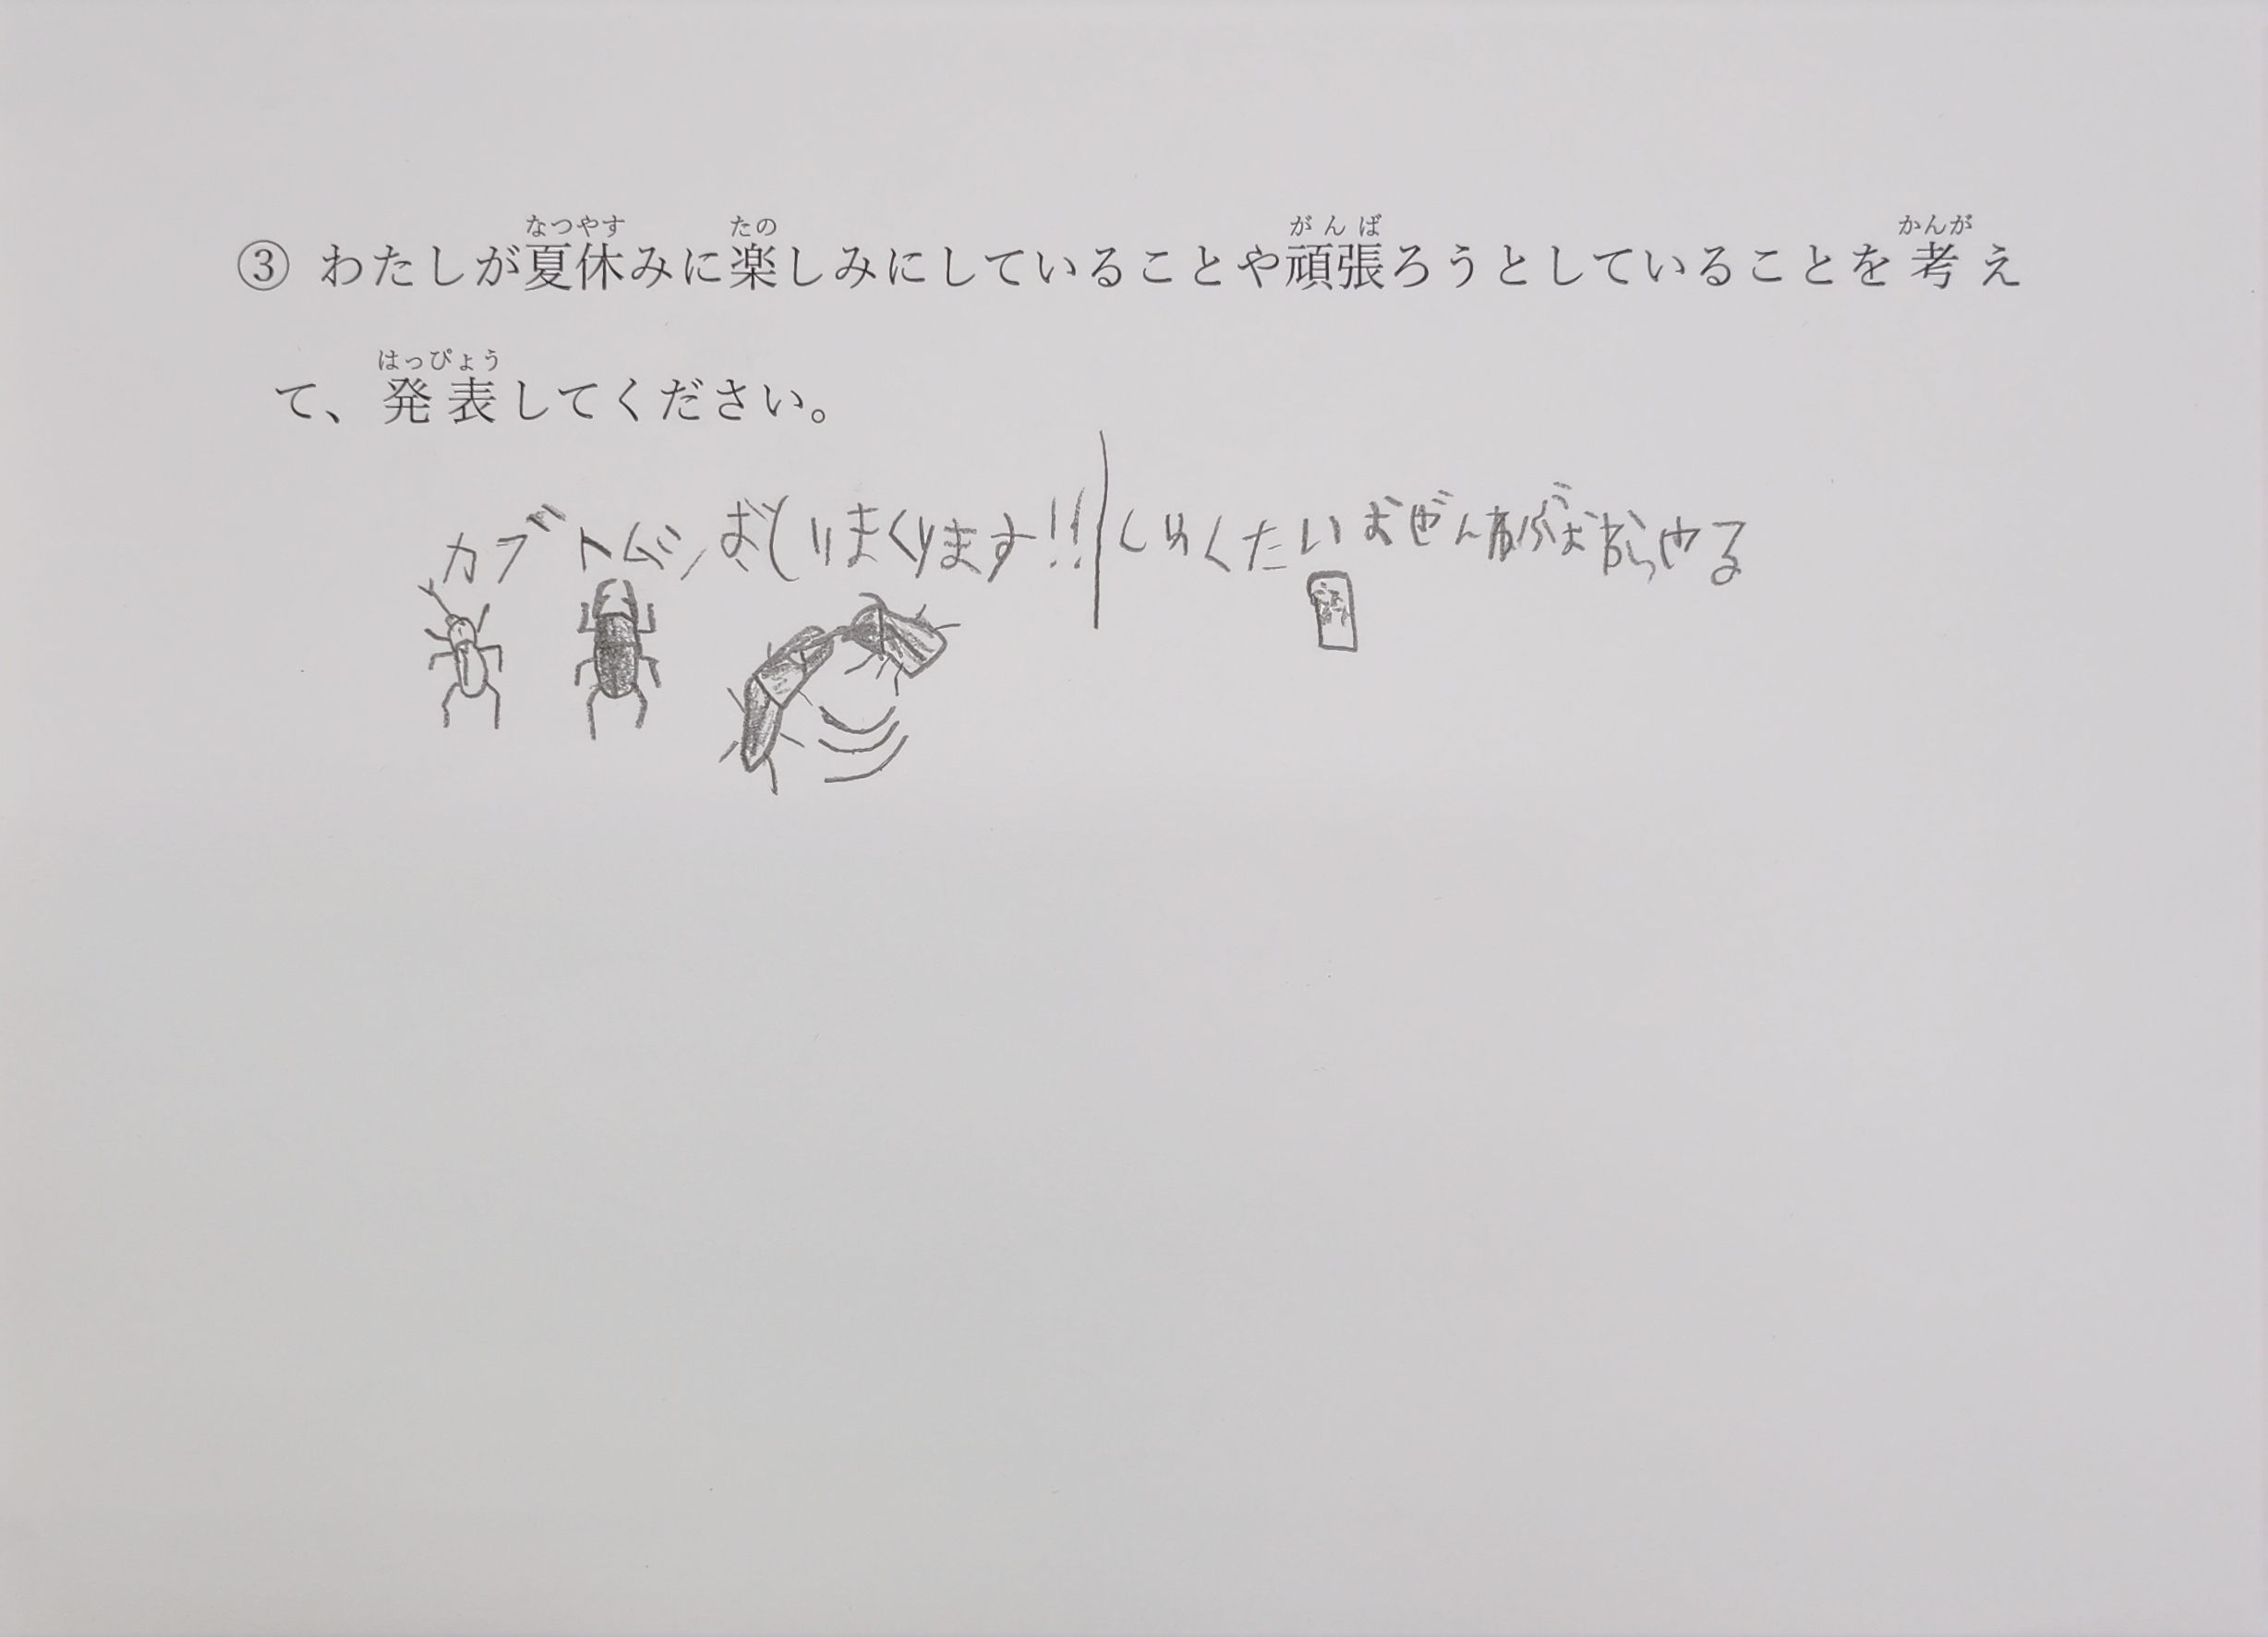 なつやす たの がんば かんが
③ わたしが夏休みに楽しみにしていることや頑張ろうとしていることを考え
はっぴょう
て、発表してください。
カブトムシおとりまくります!!
しゅくたいおぜんぶおわらせる